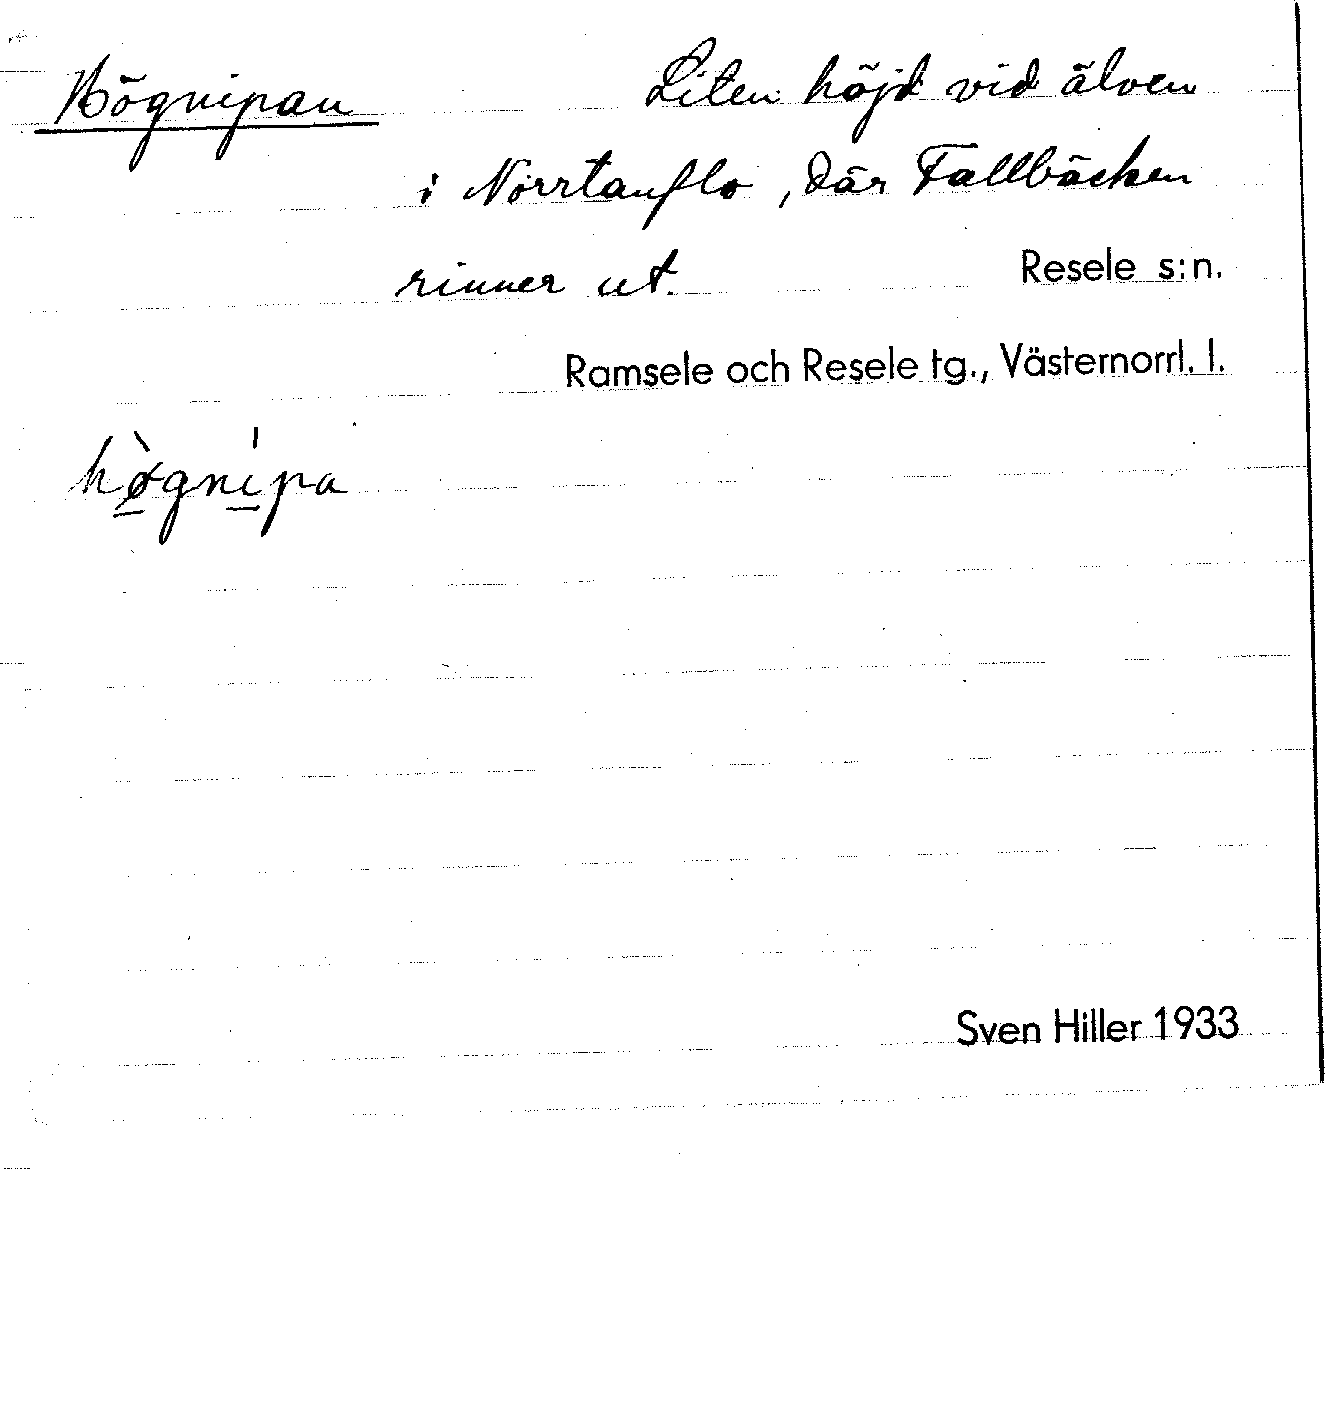 Högnipan Liten höjd vid älven
i Norrtanflo, där Fallbäcken
rinner ut. Resele s:n.
Ramsele och Resele tg., Västernorrl. l.
hø̀gnípa
Sven Hiller 1933